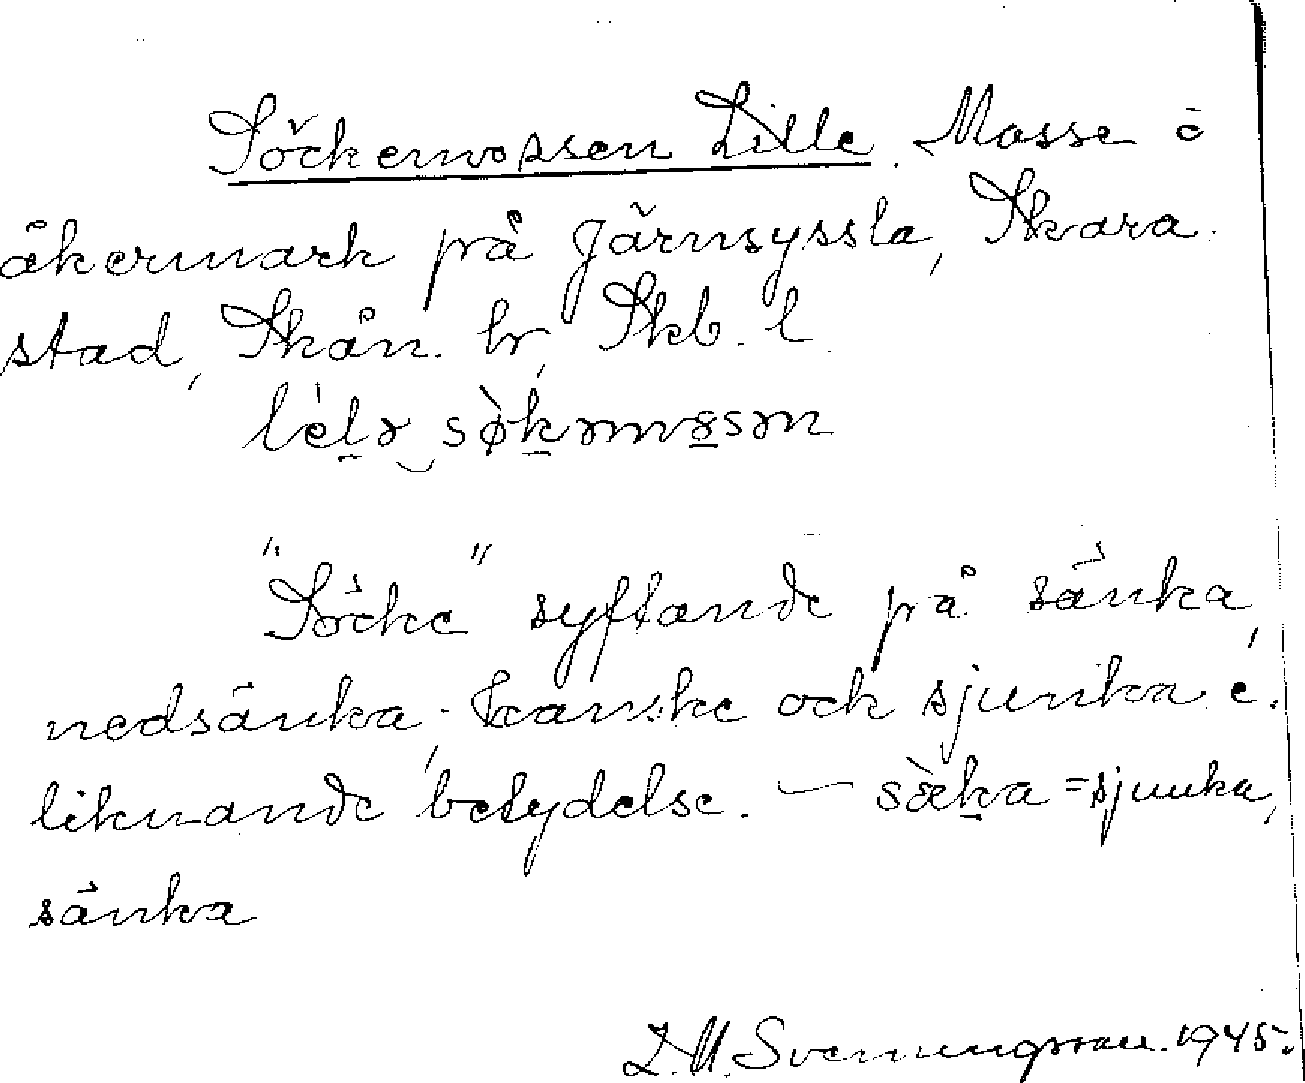 Söckemossen Lille. Mosse o
åkermark på Järnsyssla, Skara
stad, Skån. hr, Skb. l
lelə søkəmosən
"Söcke" syftande på sänka,
nedsänka, kanske och sjunka i.
liknande betydelse. — söka = sjunka,
sänka
Z.M. Svenungsson. 1945.